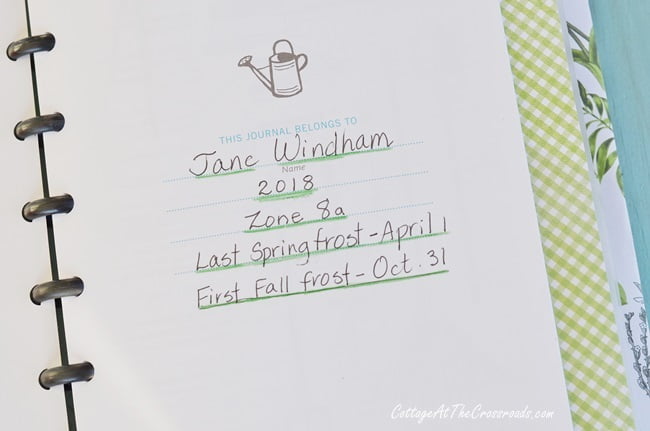 THIS JOURNAL BELONGS TO
Jane Windham
Name
2018
Zone 8a
Last Spring frost - April 1
First Fall frost - Oct. 31
CottageAtTheCrossroads.com